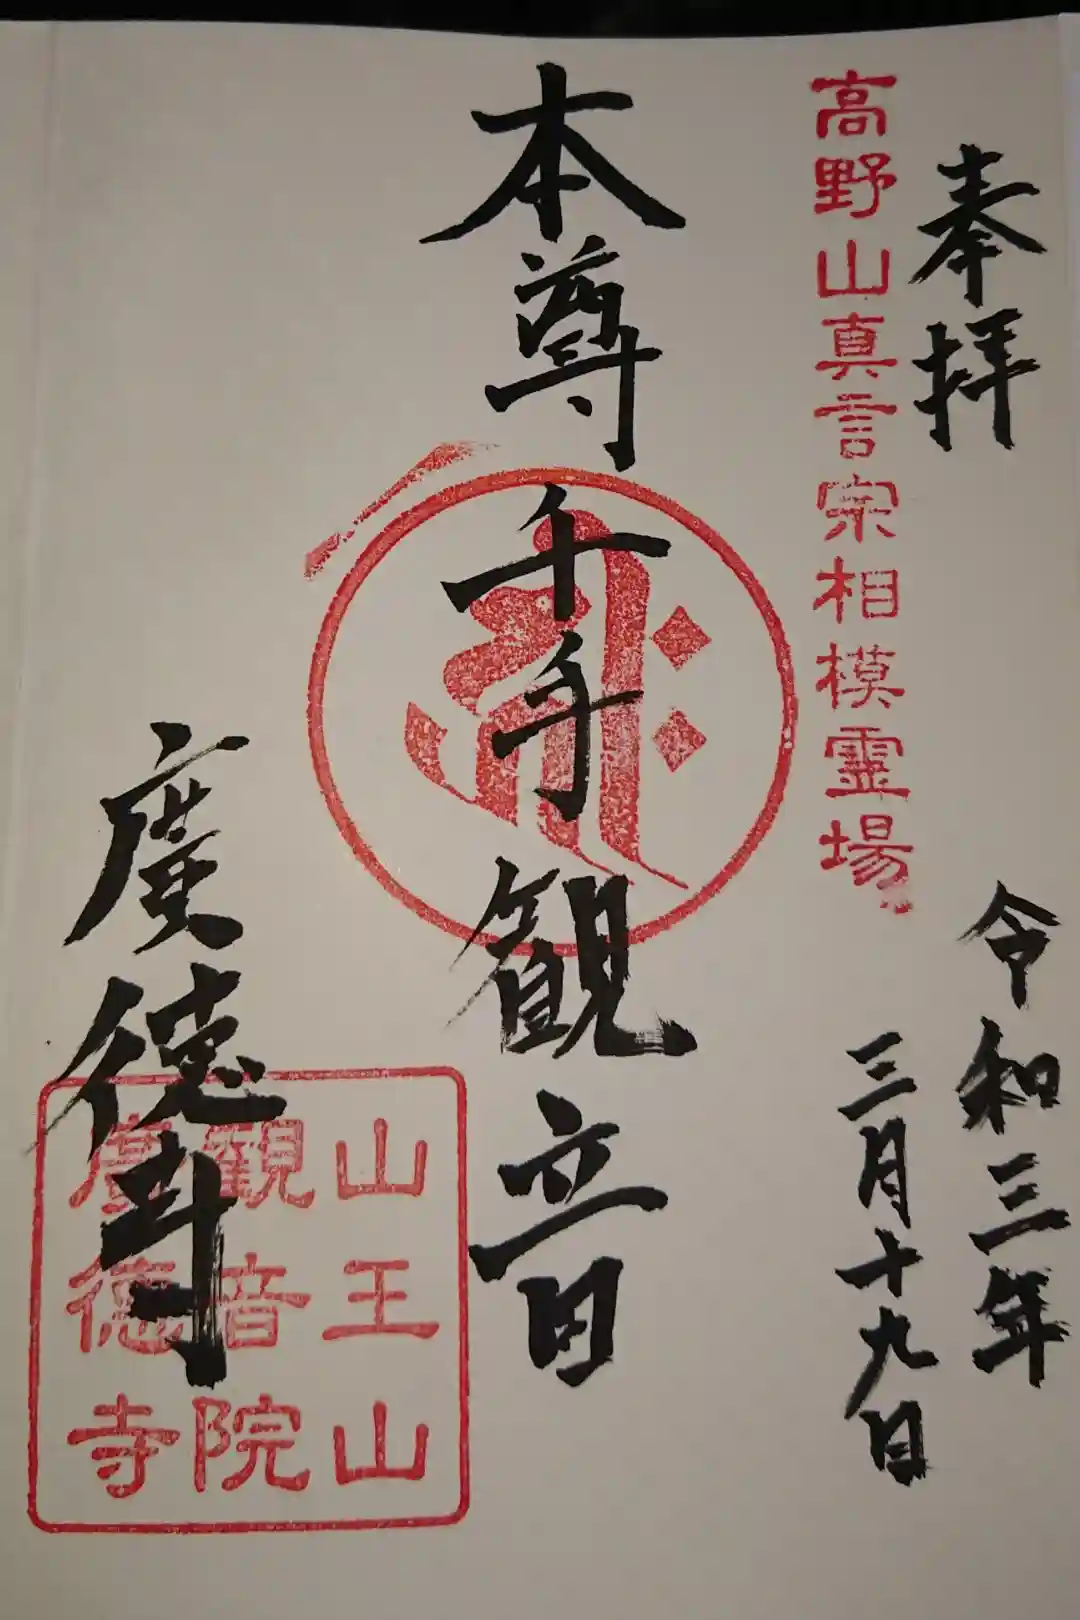 奉拝
高野山真言宗相模霊場
令和三年
三月十九日
本尊千手観音
廣徳寺
山王山
觀音院
廣德寺